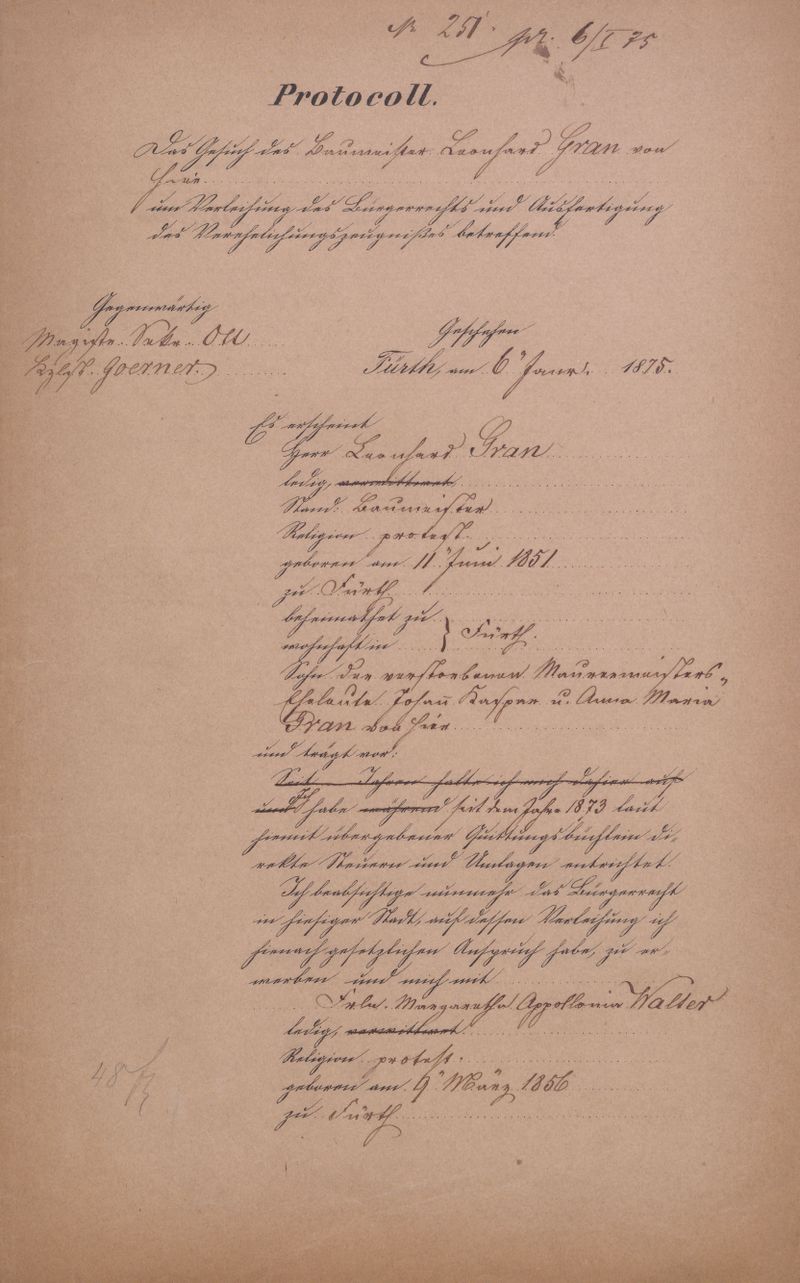 Nr 251. pr. 6/I 75
Protocoll.
Das Gesuch des Baumeister Leonhard Gran von
hier
um Verleihung des Bürgerrechts und Ausfertigung
des Verehelichungszeugnißes betreffend.
Gegenwärtig
Magistr. Sekr. Ott
Kzlist. Goerner.
Geschehen
Fürth, am 6" Januar 1875.
Es erscheint
Herr Leonhard Gran
ledig, verwittwet
Stand: Baumeister
Religion protest.
geboren am 11" Juni 1851
zu Fürth
beheimathet zu
wohnhaft in } Fürth.
Sohn der verstorbenen Maurermeisters-
Eheleute Johann Kaspar u. Anna Maria
Gran von hier
und trägt vor:
Seit Jahren halte ich mich dahier auf
und Ich habe während seit dem Jahre 1873 laut
hiemit übergebener Quittungsbüchlein di-
rekte Steuern und Umlagen entrichtet.
Ich beabsichtige nunmehr das Bürgerrecht
in hiesiger Stadt, auf dessen Verleihung ich
hienach gesetzlichen Anspruch habe, zu er-
werben und mich mit
Frln. Margaretha Appollonia Walter
ledig, verwittwet
Religion protest.
geboren am 9" März 1856
zu Fürth